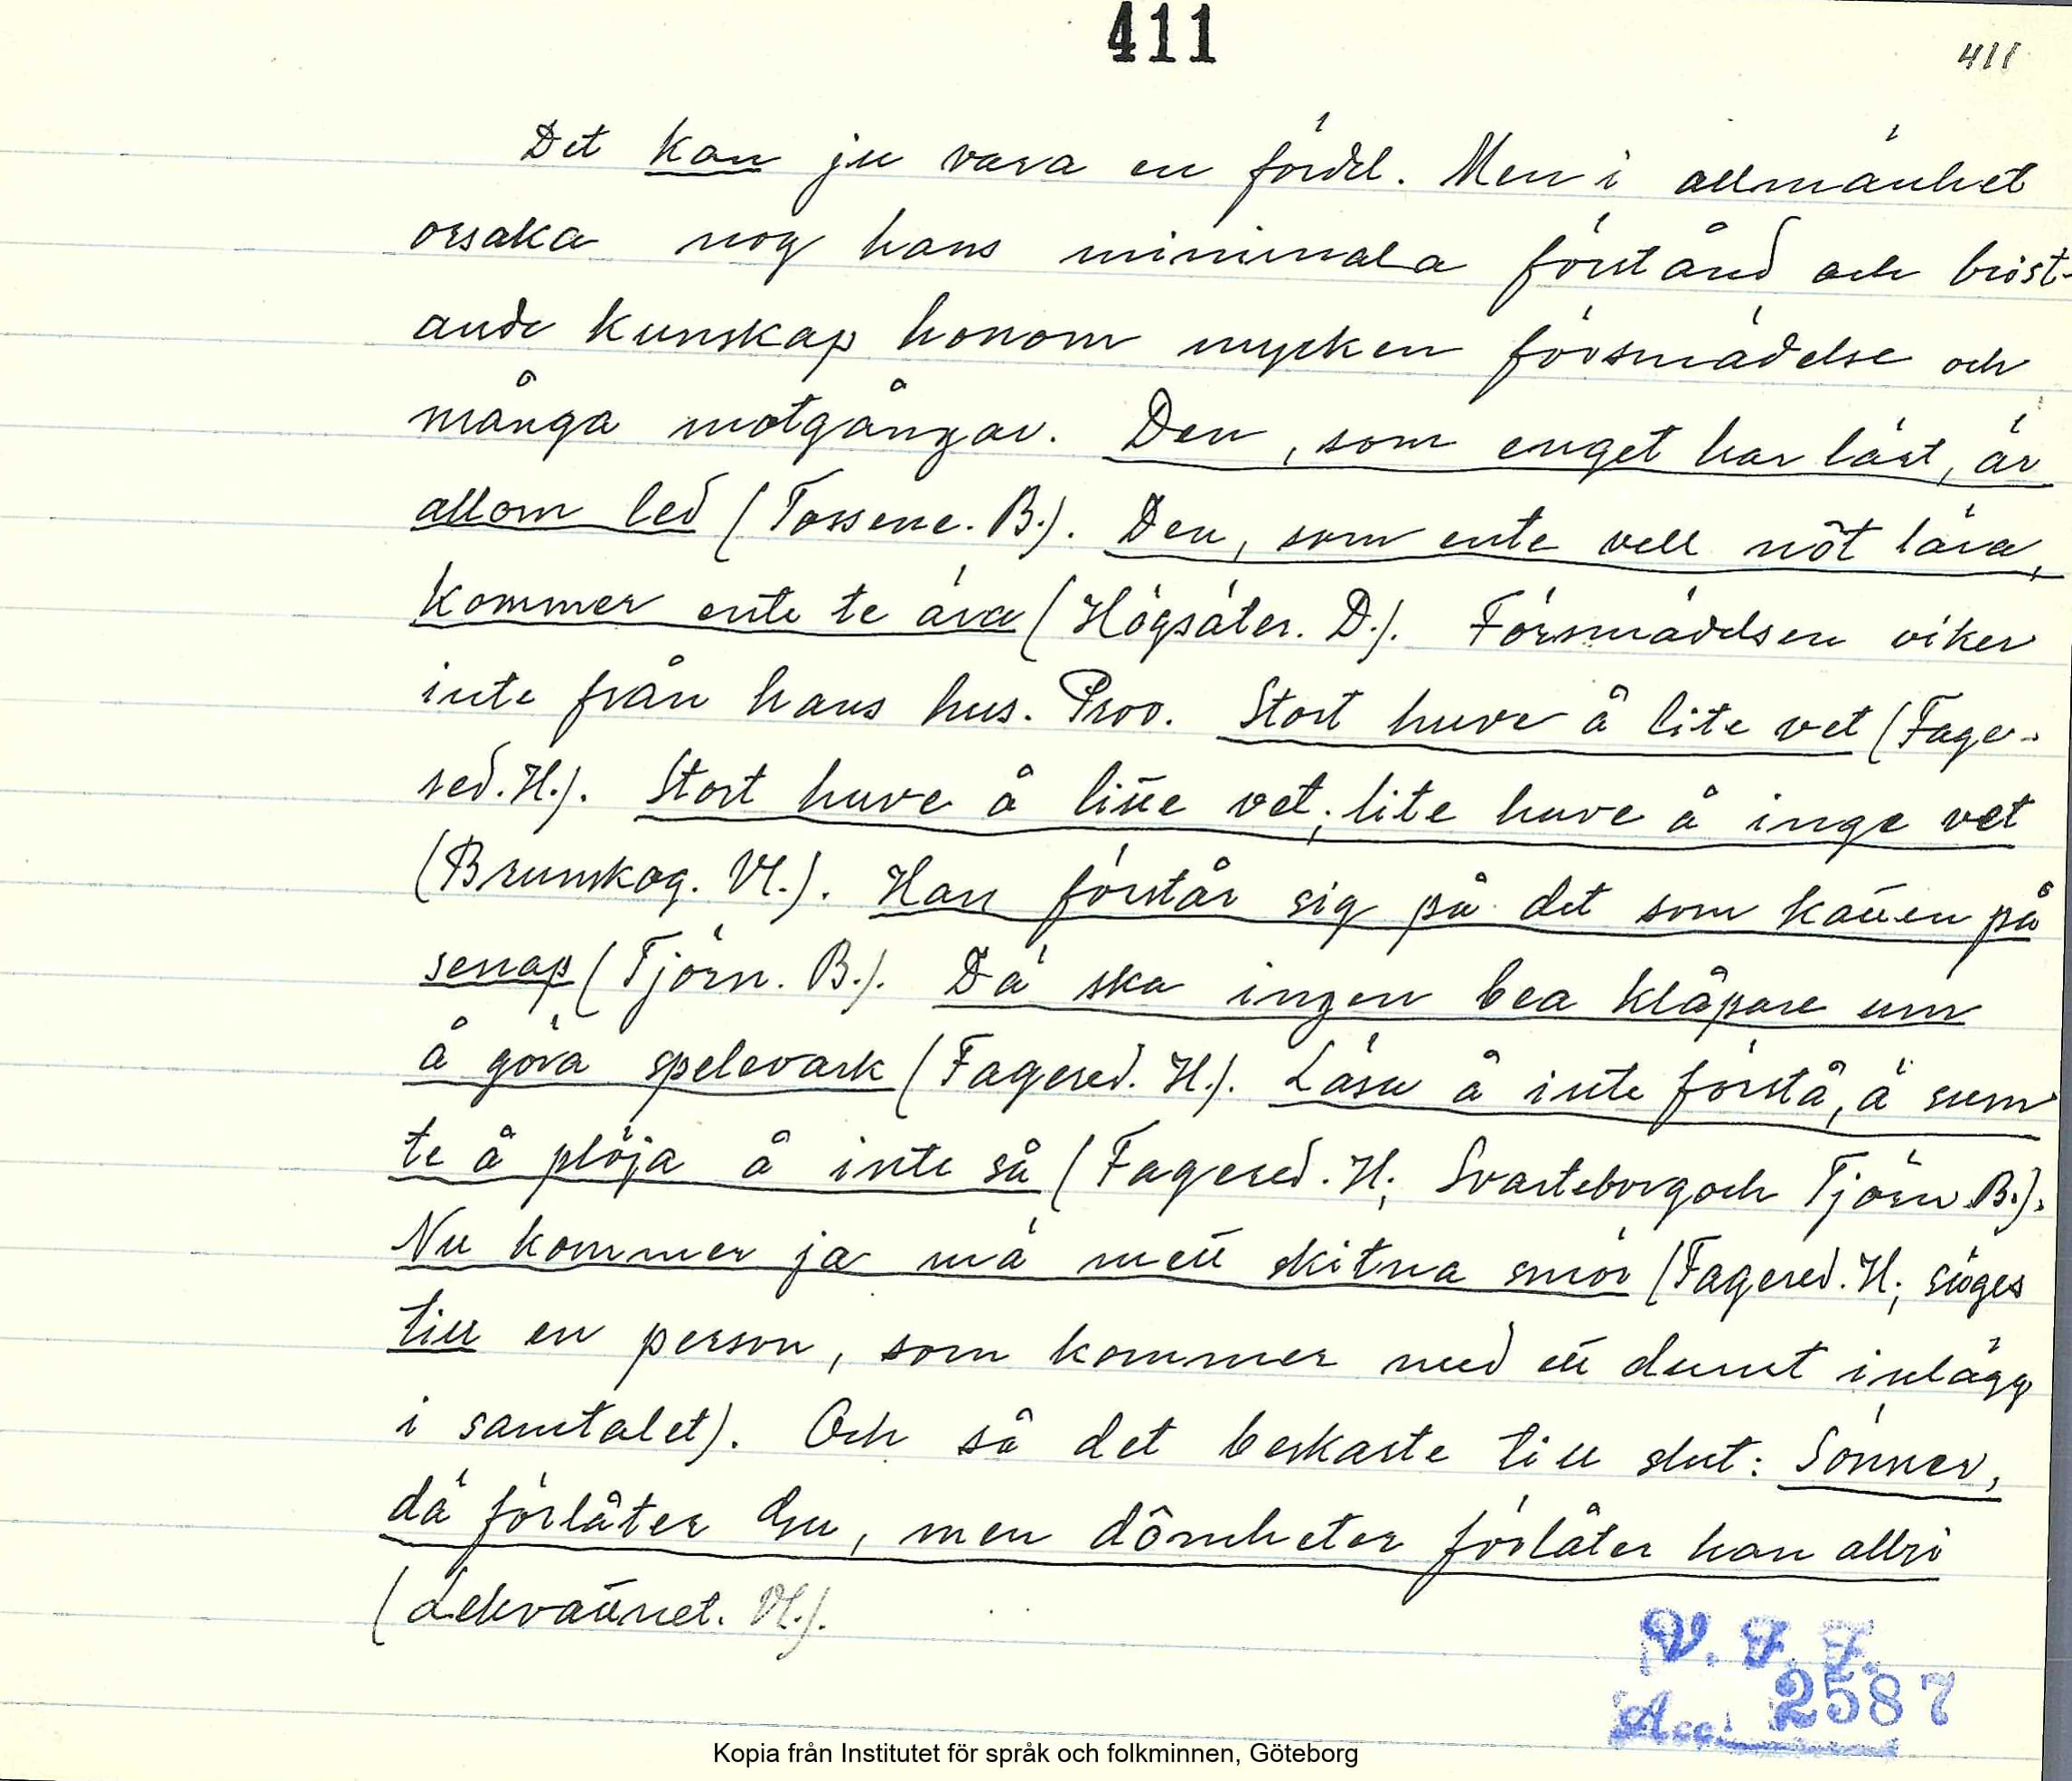 411
411
Det kan ju vara en fördel. Men i allmänhet
orsaka nog hans minimala förstånd och brist-
ande kunskap honom mycken försmädelse och
många motgångar. Den, som enget har lärt, är
allom led (Tossene. B.). Den, som ente vell nôt lära,
kommer ente te ära (Högsäter. D.). Försmädelsen viker
inte från hans hus. Prov. Stort huve å lite vet (Fage-
red. H.). Stort huve å litte vet; lite huve å inge vet
(Brunskog. Vl.). Han förstår sig på det som katten på
senap (Tjörn. B.). Dä ska ingen bea klåpare um
å göra spelevark (Fagered. H.). Läsa å inte förstå, ä sum
te å plöja å inte så (Fagered. H; Svarteborg och Tjörn. B.).
Nu kommer ja mä mett skitna smör (Fagered. H; säges
till en person, som kommer med ett dumt inlägg
i samtalet). Och så det beskaste till slut: Sönner,
dä förlåter Gu, men dômheter förlåter han allri
(Lekvattnet. Vl.).
V. F. F.
Acc. 2587
Kopia från Institutet för språk och folkminnen, Göteborg